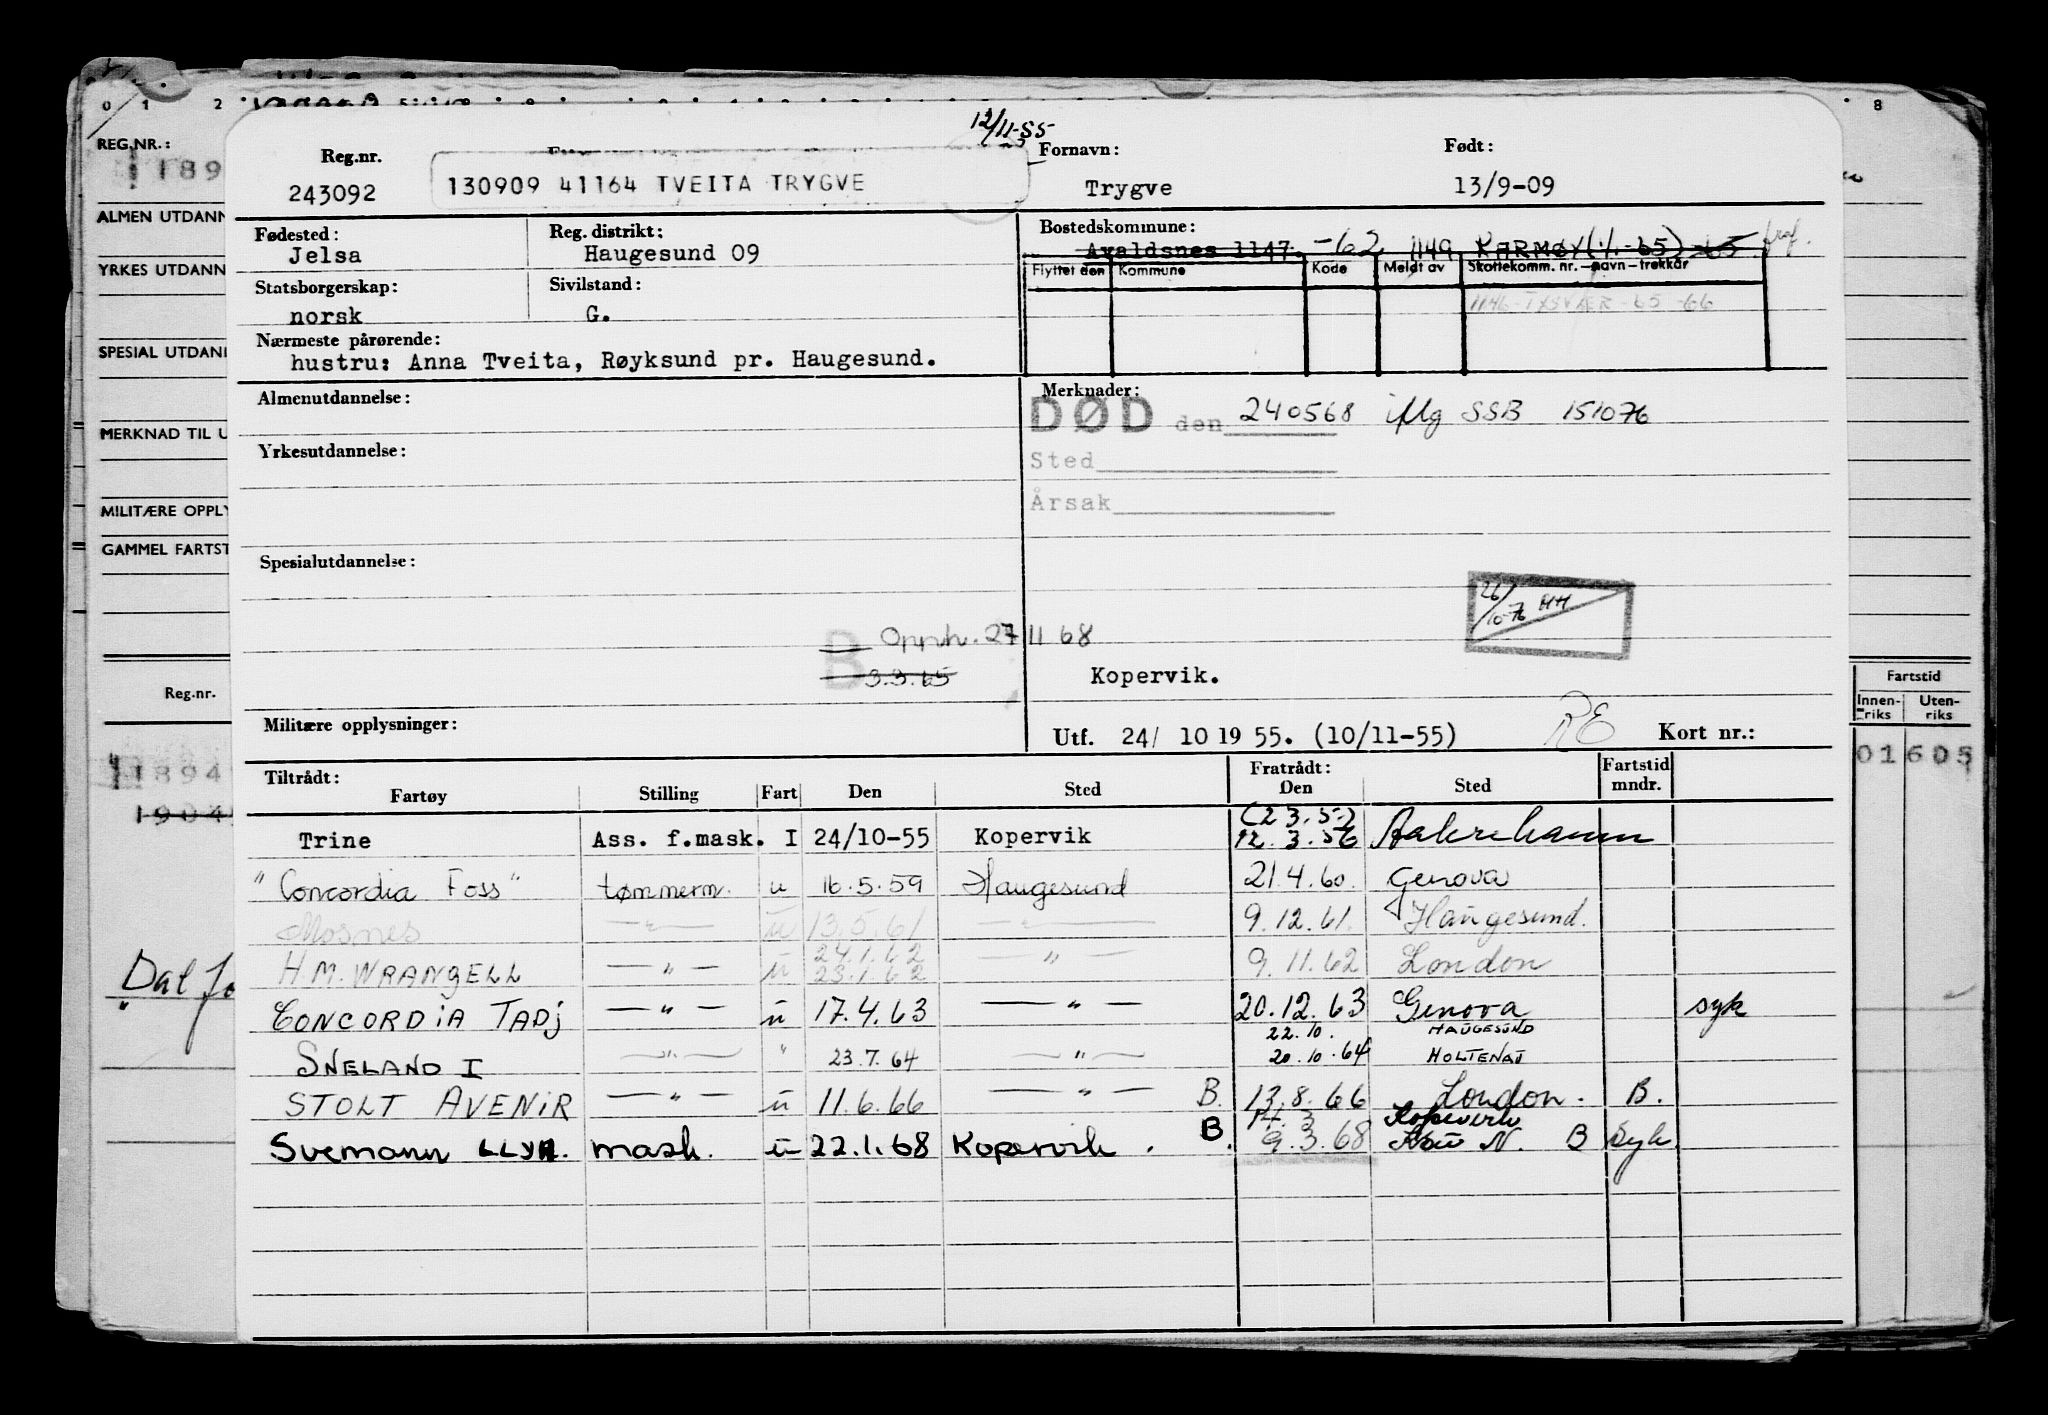 0 1 2 8
12/11-55
REG.NR.: Reg.nr. Fornavn: Født:
243092 130909 41164 TVEITA TRYGVE Trygve 13/9-09
ALMEN UTDANN Fødested: Reg. distrikt: Bostedskommune:
Jelsa Haugesund 09 Avaldsnes 1147. -62 1149 KARMØY (1/1-65)
YRKES UTDANN Flyttet den Kommune Kode Meldt av Skattekomm. nr. -navn-trekkår
Statsborgerskap: Sivilstand:
norsk G. 1146-TYSVÆR-65-66
SPESIAL UTDANN Nærmeste pårørende:
hustru: Anna Tveita, Røyksund pr. Haugesund.
Almenutdannelse: Merknader:
DØD den 240568 iflg SSB 151076
MERKNAD TIL U
Yrkesutdannelse: Sted
MILITÆRE OPPLY Årsak
GAMMEL FARTST
Spesialutdannelse:
26/10-76 HH
B Opph. 27 11 68
3.3.65 Kopervik.
Reg.nr. Fartstid
Innenriks Utenriks
Militære opplysninger: Utf. 24/ 10 19 55. (10/11-55) RE Kort nr.:
01605
Tiltrådt: Fratrådt: Fartstid
Fartøy Stilling Fart Den Sted Den Sted mndr.
Trine Ass. f.mask. I 24/10-55 Kopervik 12.3.56 Aakrehamn
"Concordia Foss" tømmerm. u 16.5.59 Haugesund 21.4.60. Genova
Mosnes —"— u 13.5.61 —"— 9.12.61. Haugesund.
24.1.62
H.M. WRANGELL —"— u 23.1.62 —"— 9.11.62 London
CONCORDIA TADJ —"— u 17.4.63 —"— 20.12.63 Genova syk
22.10. HAUGESUND
SNELAND I —"— " 23.7.64 —"— 20.10.64 HOLTENAU
STOLT AVENIR —"— u 11.6.66 —"— B. 13.8.66 London. B.
14.3 Kopervik
Svemann LLYH. mask. u 22.1.68 Kopervik. B. 9.3.68 N. B Syk